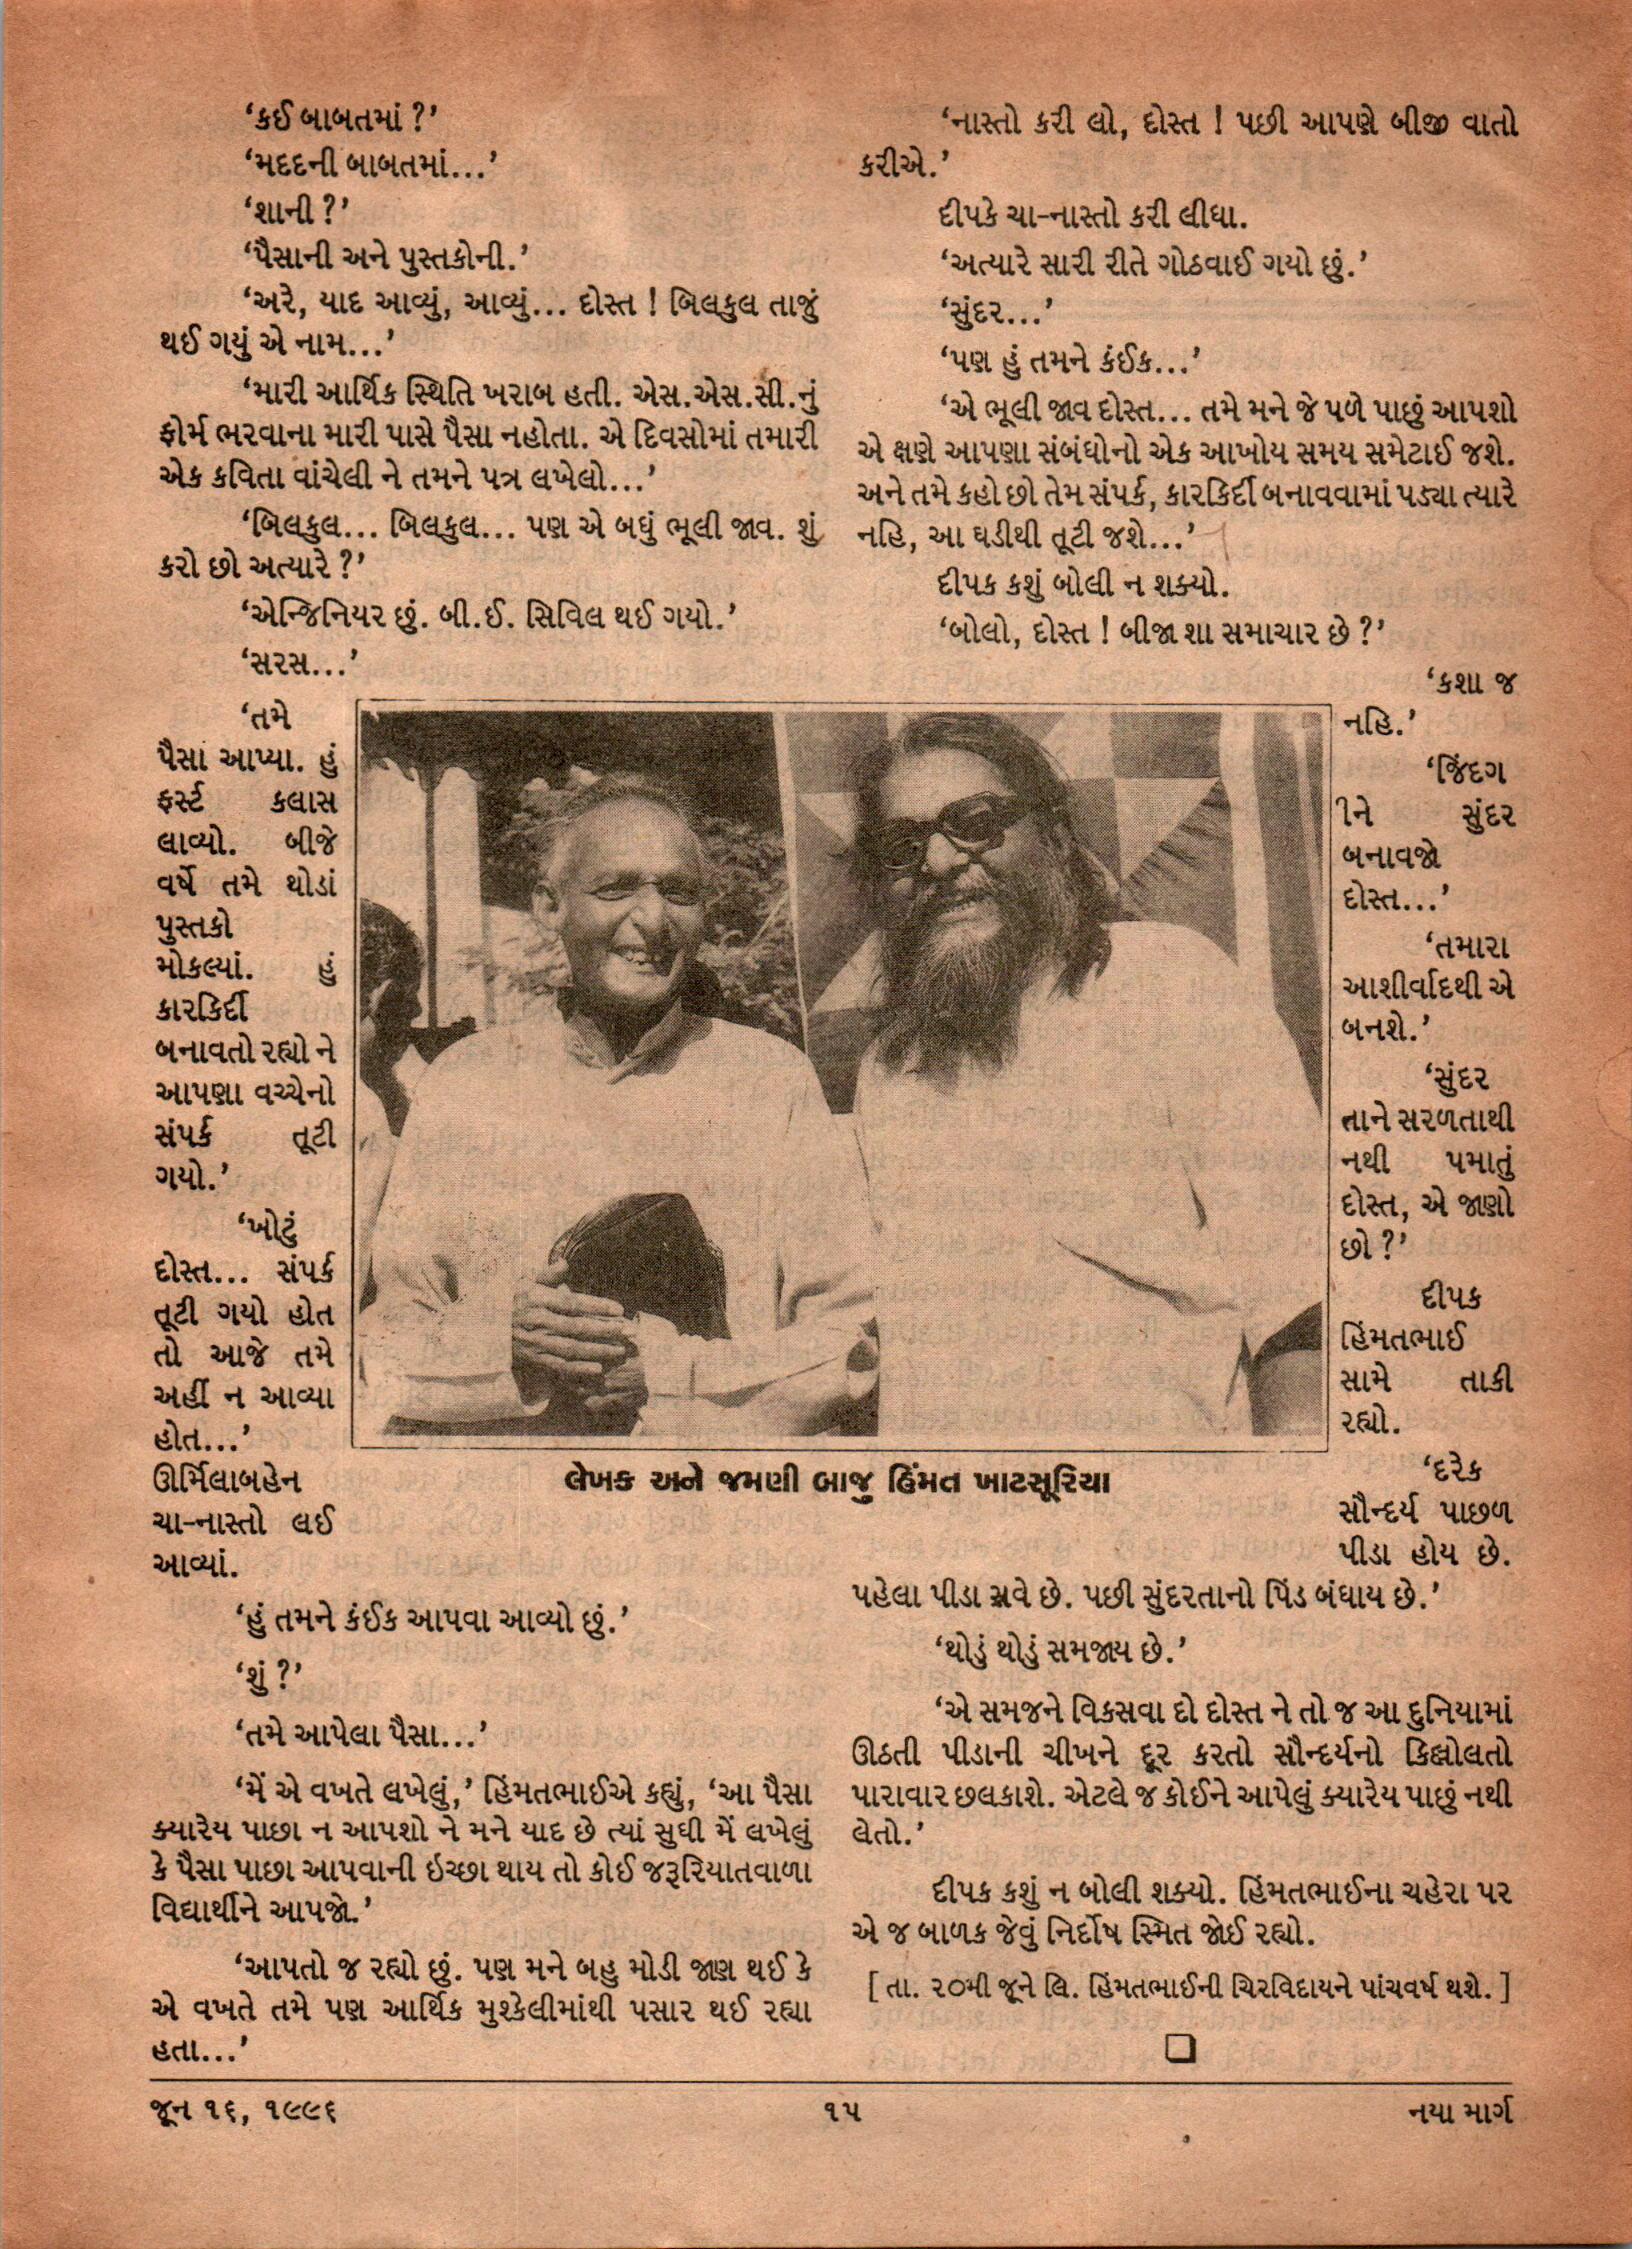 ‘કઈ બાબતમાં ?’
‘મદદની બાબતમાં...’
‘શાની ?’
‘પૈસાની અને પુસ્તકોની.’
‘અરે, યાદ આવ્યું, આવ્યું... દોસ્ત ! બિલકુલ તાજું
થઈ ગયું એ નામ...’
‘મારી આર્થિક સ્થિતિ ખરાબ હતી. એસ.એસ.સી.નું
ફોર્મ ભરવાના મારી પાસે પૈસા નહોતા. એ દિવસોમાં તમારી
એક કવિતા વાંચેલી ને તમને પત્ર લખેલો...’
‘બિલકુલ... બિલકુલ... પણ એ બધું ભૂલી જાવ. શું
કરો છો અત્યારે ?’
‘એન્જિનિયર છું. બી.ઈ. સિવિલ થઈ ગયો.’
‘સરસ...’
‘તમે
પૈસા આપ્યા. હું
ફર્સ્ટ કલાસ
લાવ્યો. બીજે
વર્ષે તમે થોડાં
પુસ્તકો
મોકલ્યાં. હું
કારકિર્દી
બનાવતો રહ્યો ને
આપણા વચ્ચેનો
સંપર્ક તૂટી
ગયો.’
‘ખોટું
દોસ્ત... સંપર્ક
તૂટી ગયો હોત
તો આજે તમે
અહીં ન આવ્યા
હોત...’
ઊર્મિલાબહેન
ચા-નાસ્તો લઈ
આવ્યાં.
‘હું તમને કંઈક આપવા આવ્યો છું.’
‘શું ?’
‘તમે આપેલા પૈસા...’
‘મેં એ વખતે લખેલું,’ હિંમતભાઈએ કહ્યું, ‘આ પૈસા
ક્યારેય પાછા ન આપશો ને મને યાદ છે ત્યાં સુધી મેં લખેલું
કે પૈસા પાછા આપવાની ઇચ્છા થાય તો કોઈ જરૂરિયાતવાળા
વિદ્યાર્થીને આપજો.’
‘આપતો જ રહ્યો છું. પણ મને બહુ મોડી જાણ થઈ કે
એ વખતે તમે પણ આર્થિક મુશ્કેલીમાંથી પસાર થઈ રહ્યા
હતા...’
‘નાસ્તો કરી લો, દોસ્ત ! પછી આપણે બીજી વાતો
કરીએ.’
દીપકે ચા-નાસ્તો કરી લીધા.
‘અત્યારે સારી રીતે ગોઠવાઈ ગયો છું.’
‘સુંદર...’
‘પણ હું તમને કંઈક...’
‘એ ભૂલી જાવ દોસ્ત... તમે મને જે પળે પાછું આપશો
એ ક્ષણે આપણા સંબંધોનો એક આખોય સમય સમેટાઈ જશે.
અને તમે કહો છો તેમ સંપર્ક, કારકિર્દી બનાવવામાં પડ્યા ત્યારે
નહિ, આ ઘડીથી તૂટી જશે...’
દીપક કશું બોલી ન શક્યો.
‘બોલો, દોસ્ત ! બીજા શા સમાચાર છે ?’
‘કશા જ
નહિ.’
‘જિંદગ
ીને સુંદર
બનાવજો
દોસ્ત...’
‘તમારા
આશીર્વાદથી એ
બનશે.’
‘સુંદર
તાને સરળતાથી
નથી પમાતું
દોસ્ત, એ જાણો
છો ?’
દીપક
હિંમતભાઈ
સામે તાકી
રહ્યો.
‘દરેક
સૌન્દર્ય પાછળ
પીડા હોય છે.
પહેલા પીડા સ્રવે છે. પછી સુંદરતાનો પિંડ બંધાય છે.’
‘થોડું થોડું સમજાય છે.’
‘એ સમજને વિકસવા દો દોસ્ત ને તો જ આ દુનિયામાં
ઊઠતી પીડાની ચીખને દૂર કરતો સૌન્દર્યનો કિલ્લોલતો
પારાવાર છલકાશે. એટલે જ કોઈને આપેલું ક્યારેય પાછું નથી
લેતો.’
દીપક કશું ન બોલી શક્યો. હિંમતભાઈના ચહેરા પર
એ જ બાળક જેવું નિર્દોષ સ્મિત જોઈ રહ્યો.
[ તા. ૨૦મી જૂને લિ. હિંમતભાઈની ચિરવિદાયને પાંચવર્ષ થશે. ]
લેખક અને જમણી બાજુ હિંમત ખાટસૂરિયા
જૂન ૧૬, ૧૯૯૬
૧૫
નયા માર્ગ